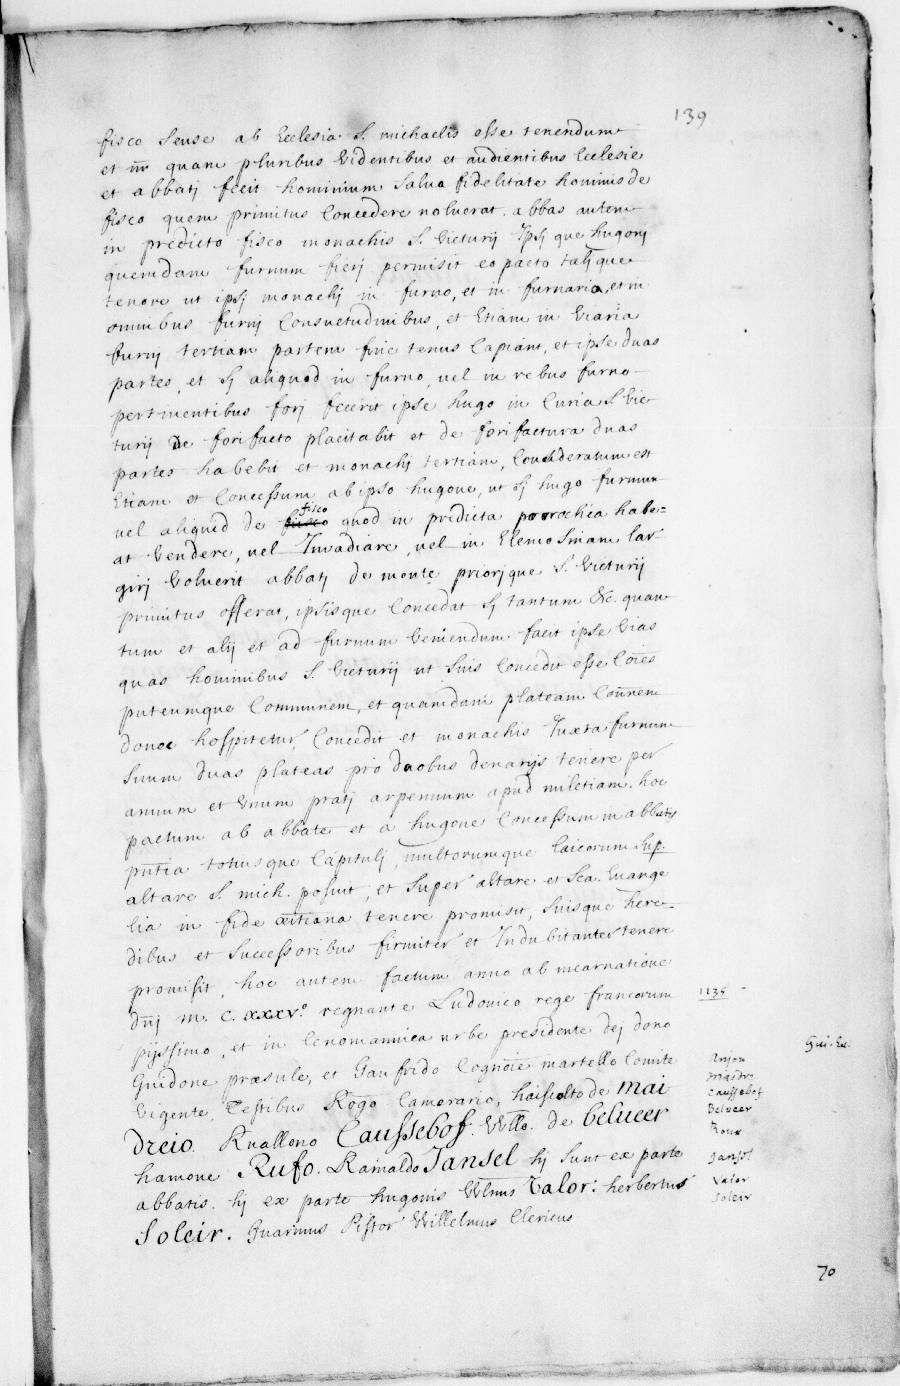 139
fisco seuse ab Ecclesia S. michaelis esse tenendum
et in quam pluribus Videntibus et audientibus Ecclesie
et abbatj fecit hominium salva fidelitate hominis de
fisco quem primitus Concedere noluerat. abbas autem
in predicto fisco monachis S. Victurij Ipsj que hugonj
quemdam furnum fierj permisit eo pacto talj que
tenore ut ipsj monachj in furno, et in furnaria, et in
omnibus furnj Consuetudinibus, et Etiam in Viaria
furnj tertiam partem hinc tenus Capiant, et ipse duas
partes, et sj aliquod in furno, vel in rebus furno
pertinentibus forj fecerit ipse hugo in Curia S. Vic
turij De forifacto placitabit et de forifactura duas
partes habebit et monachj tertiam, Consideratum est
Etiam et Concessum ab ipso hugone, ut sj hugo furnum
vel aliquid de fisco quod in predicta parrochia habe=
at Vendere, vel Invadiare, vel in Elemosinam lar
girj Voluerit abbatj de monte priorj que S. Victurij
primitus offerat, ipsisque Concedat sj tantum &c. quan
tum et alij et ad furnum Veniendum facit ipse Vias
quas hominibus S. Victurij ut suis Concedit esse Coēs
puteumque Communem, et quamdam plateam Coūnem
donec hospitetur, Concedit et monachis Juxta furnum
suum duas plateas pro duobus denarijs tenere per
annum et Vnum pratj arpennum apud miletiam. hoc
pactum ab abbate et a hugone Concessum in abbatis
pn̄tia totiusque Capitulj, multorumque laicorum sup.
altare S. mich. posuit, et super altare et Sca. Evange
lia in fide xīt̄iana tenere promisit, suisque here=
dibus et Successoribus firmiter et Indubitanter tenere
promisit, hoc autem factum anno ab incarnatione
dn̄j m. C. xxxv.º regnante Ludovico rege francorum
1135
pijssimo, et in Cenomannica urbe presidente dej dono
Gui. Ev.
Guidone præsule, et Gaufrido Cognoīe martello Comite
Anjou
Vigente, Testibus Rog̅o Camerario, haiscolto de mai
maidre
Caussebof
dreio. Ruallono Caussebof. Wllo. de belueer
Belveer
Roux
hamone Rufo. Rainaldo Jansel hj sunt ex parte
Jansel
abbatis. hj ex parte hugonis Wlmus Valor. herbertus
Valor
Soleir
Soleir. Guarinus Pistor Willelmus Clericus
70